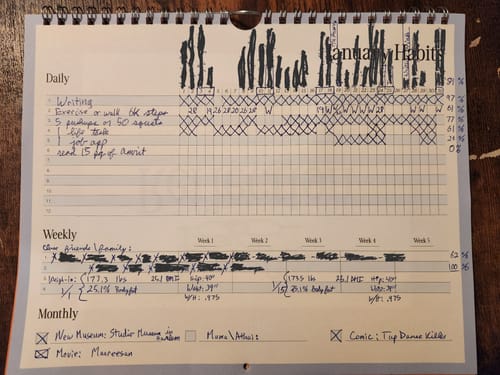 January Habits
Daily
51 %
1 Writing 97 %
2 Exercise or walk 6K steps 28 19 26 28 20 26 28 W 19 W W W W W 28 W W W 61 %
3 5 pushups or 50 squats 77 %
4 1 life task 61 %
5 1 job app 29 %
6 read 15 pg of 0%
7
8
9
10
11
12
Weekly
Week 1 Week 2 Week 3 Week 4 Week 5
Close friends\family:
62 %
100 %
Weigh-In: 177.3 lbs 25.1 BMI Hip: 40" 173.5 lbs Hip: 40"
1/1 25.1% Bodyfat Waist: 39" 1/15 25.1% body fat Waist: 39"
W/H: .975 W/H: .975
Monthly
New Museum: Studio Museum in Harlem Muma\Athai: Comic: Tip Dance Killer
Movie: Maareesan